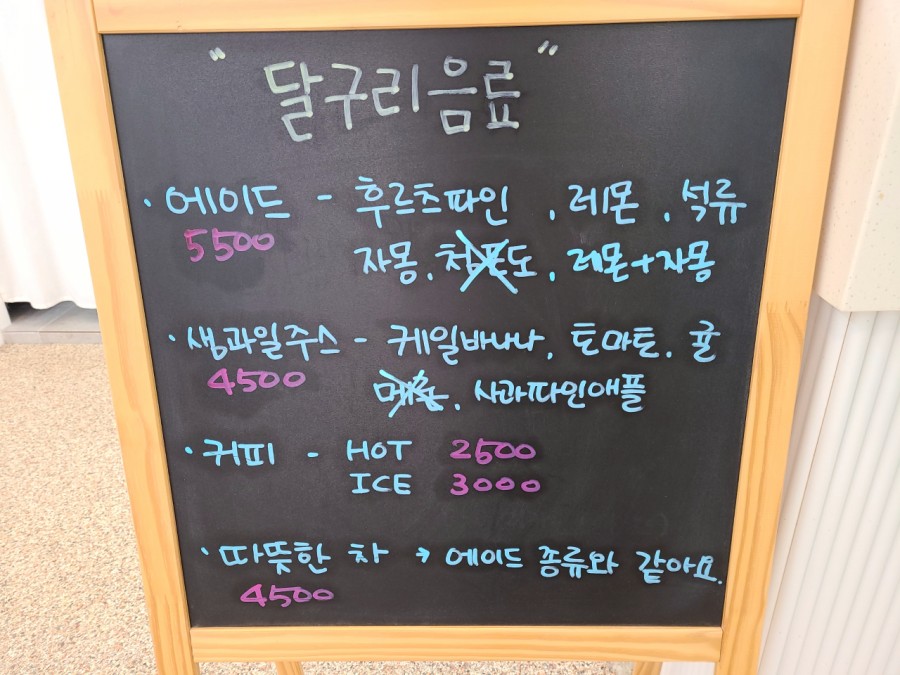 "달구리음료"
· 에이드 - 후르츠파인, 레몬, 석류
5500
자몽, 청포도, 레몬+자몽
· 생과일주스 - 케일바나나, 토마토, 귤
4500
사과파인애플
· 커피 - HOT 2500
ICE 3000
· 따뜻한 차 → 에이드 종류와 같아요.
4500